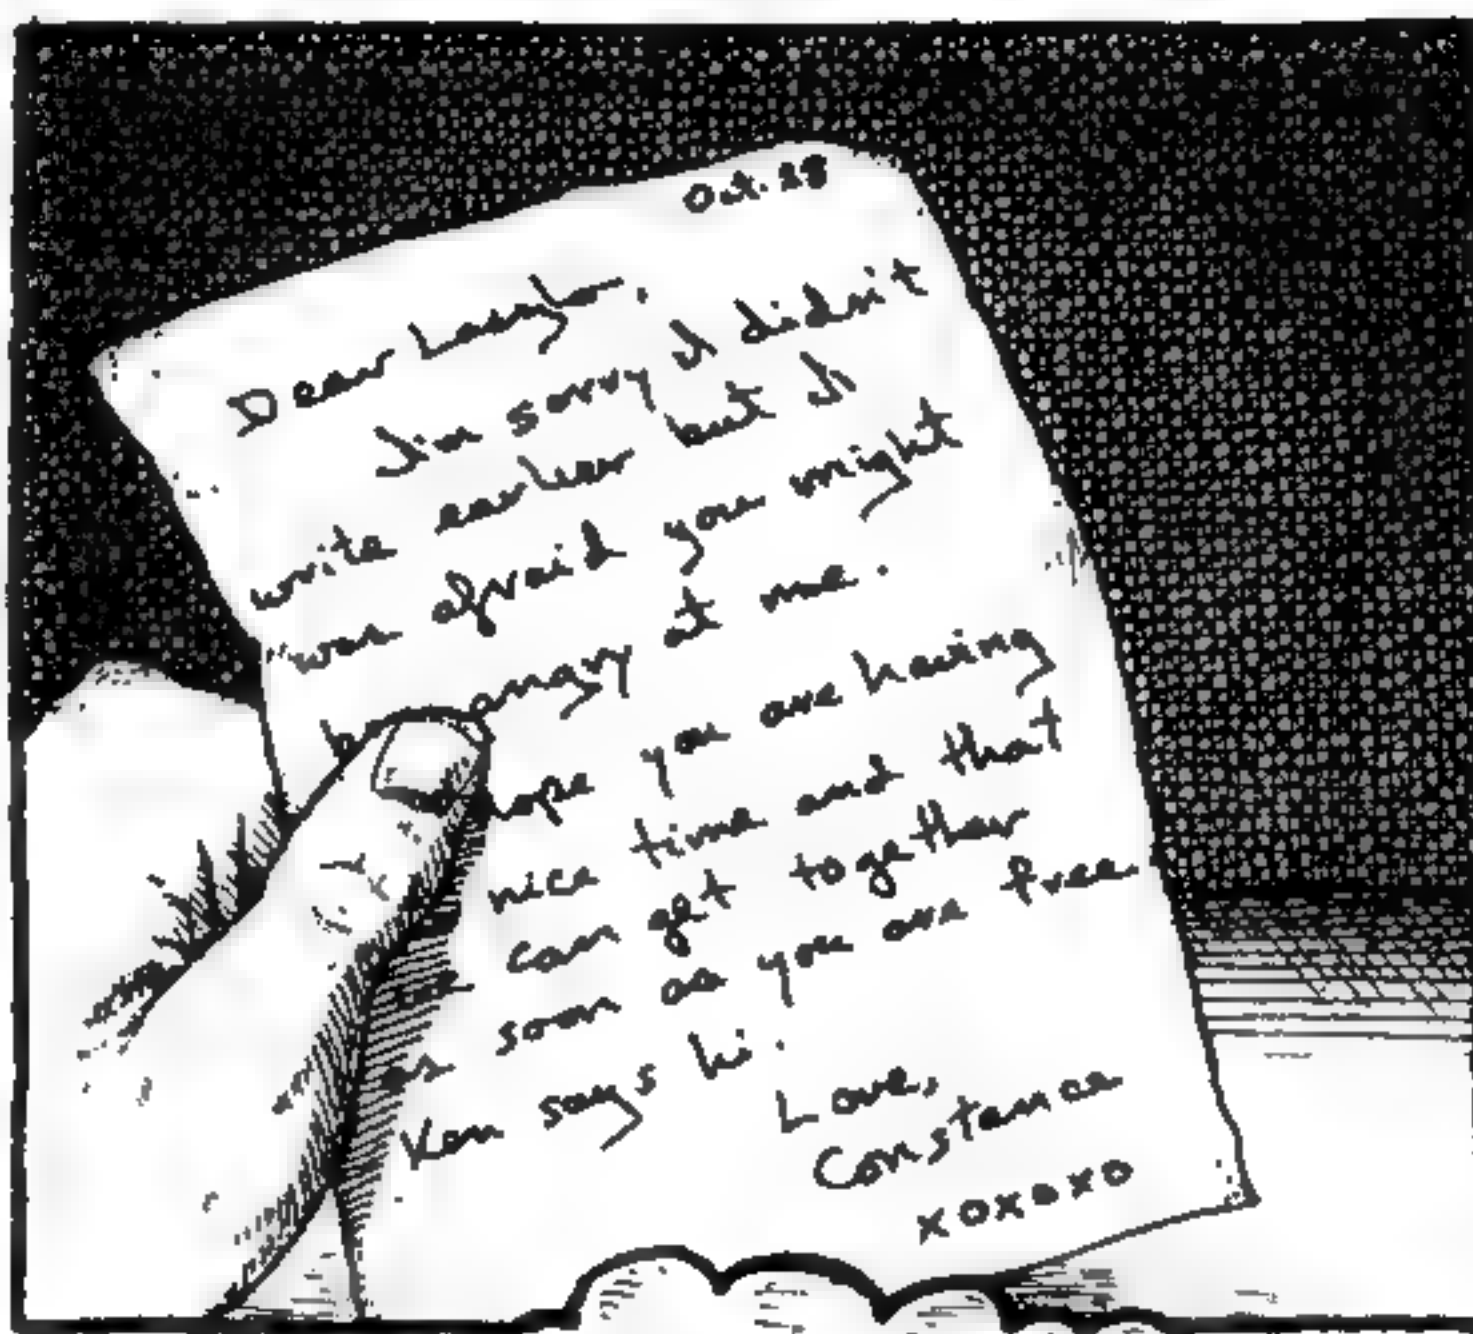 Oct. 28
Dear Laszlo,
I'm sorry I didn't
write earlier but I
was afraid you might
angry at me.
you are having
nice time and that
can get together
as soon as you are free.
Ken says hi.
Love,
Constance
xoxoxo